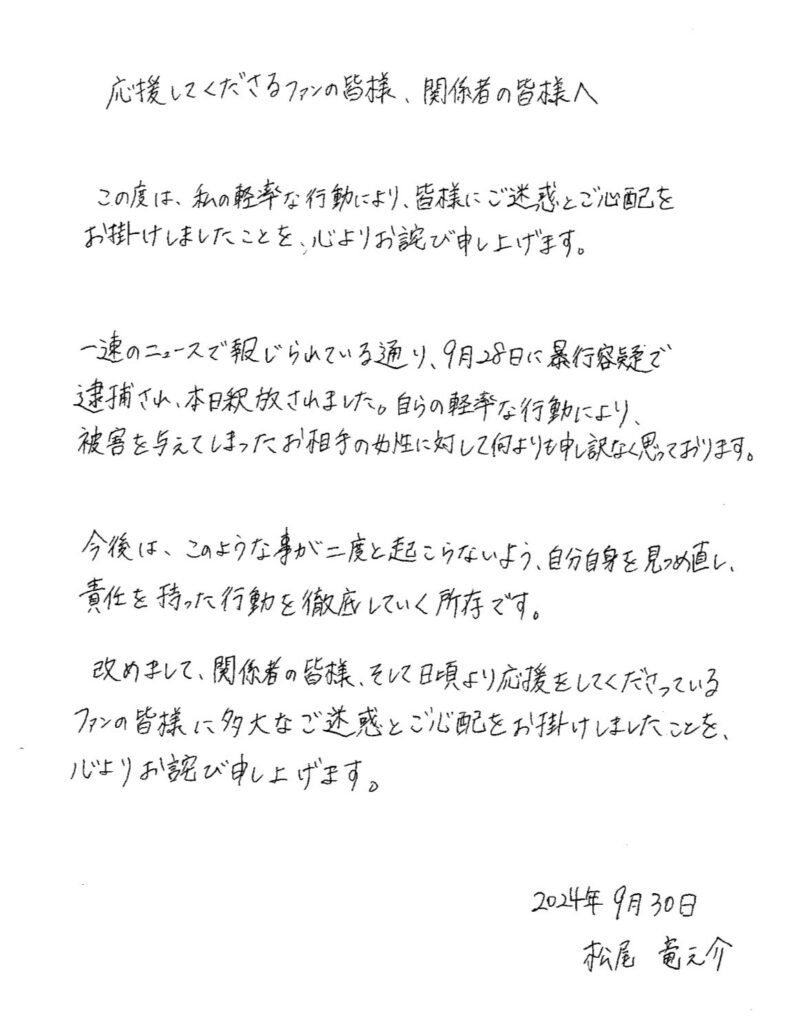 応援してくださるファンの皆様、関係者の皆様へ
この度は、私の軽率な行動により、皆様にご迷惑とご心配を
お掛けしましたことを、心よりお詫び申し上げます。
一連のニュースで報じられている通り、9月28日に暴行容疑で
逮捕され、本日釈放されました。自らの軽率な行動により、
被害を与えてしまったお相手の女性に対して何よりも申し訳なく思っております。
今後は、このような事が二度と起こらないよう、自分自身を見つめ直し、
責任を持った行動を徹底していく所存です。
改めまして、関係者の皆様、そして日頃より応援をしてくださっている
ファンの皆様に多大なご迷惑とご心配をお掛けしましたことを、
心よりお詫び申し上げます。
2024年9月30日
松尾 竜之介